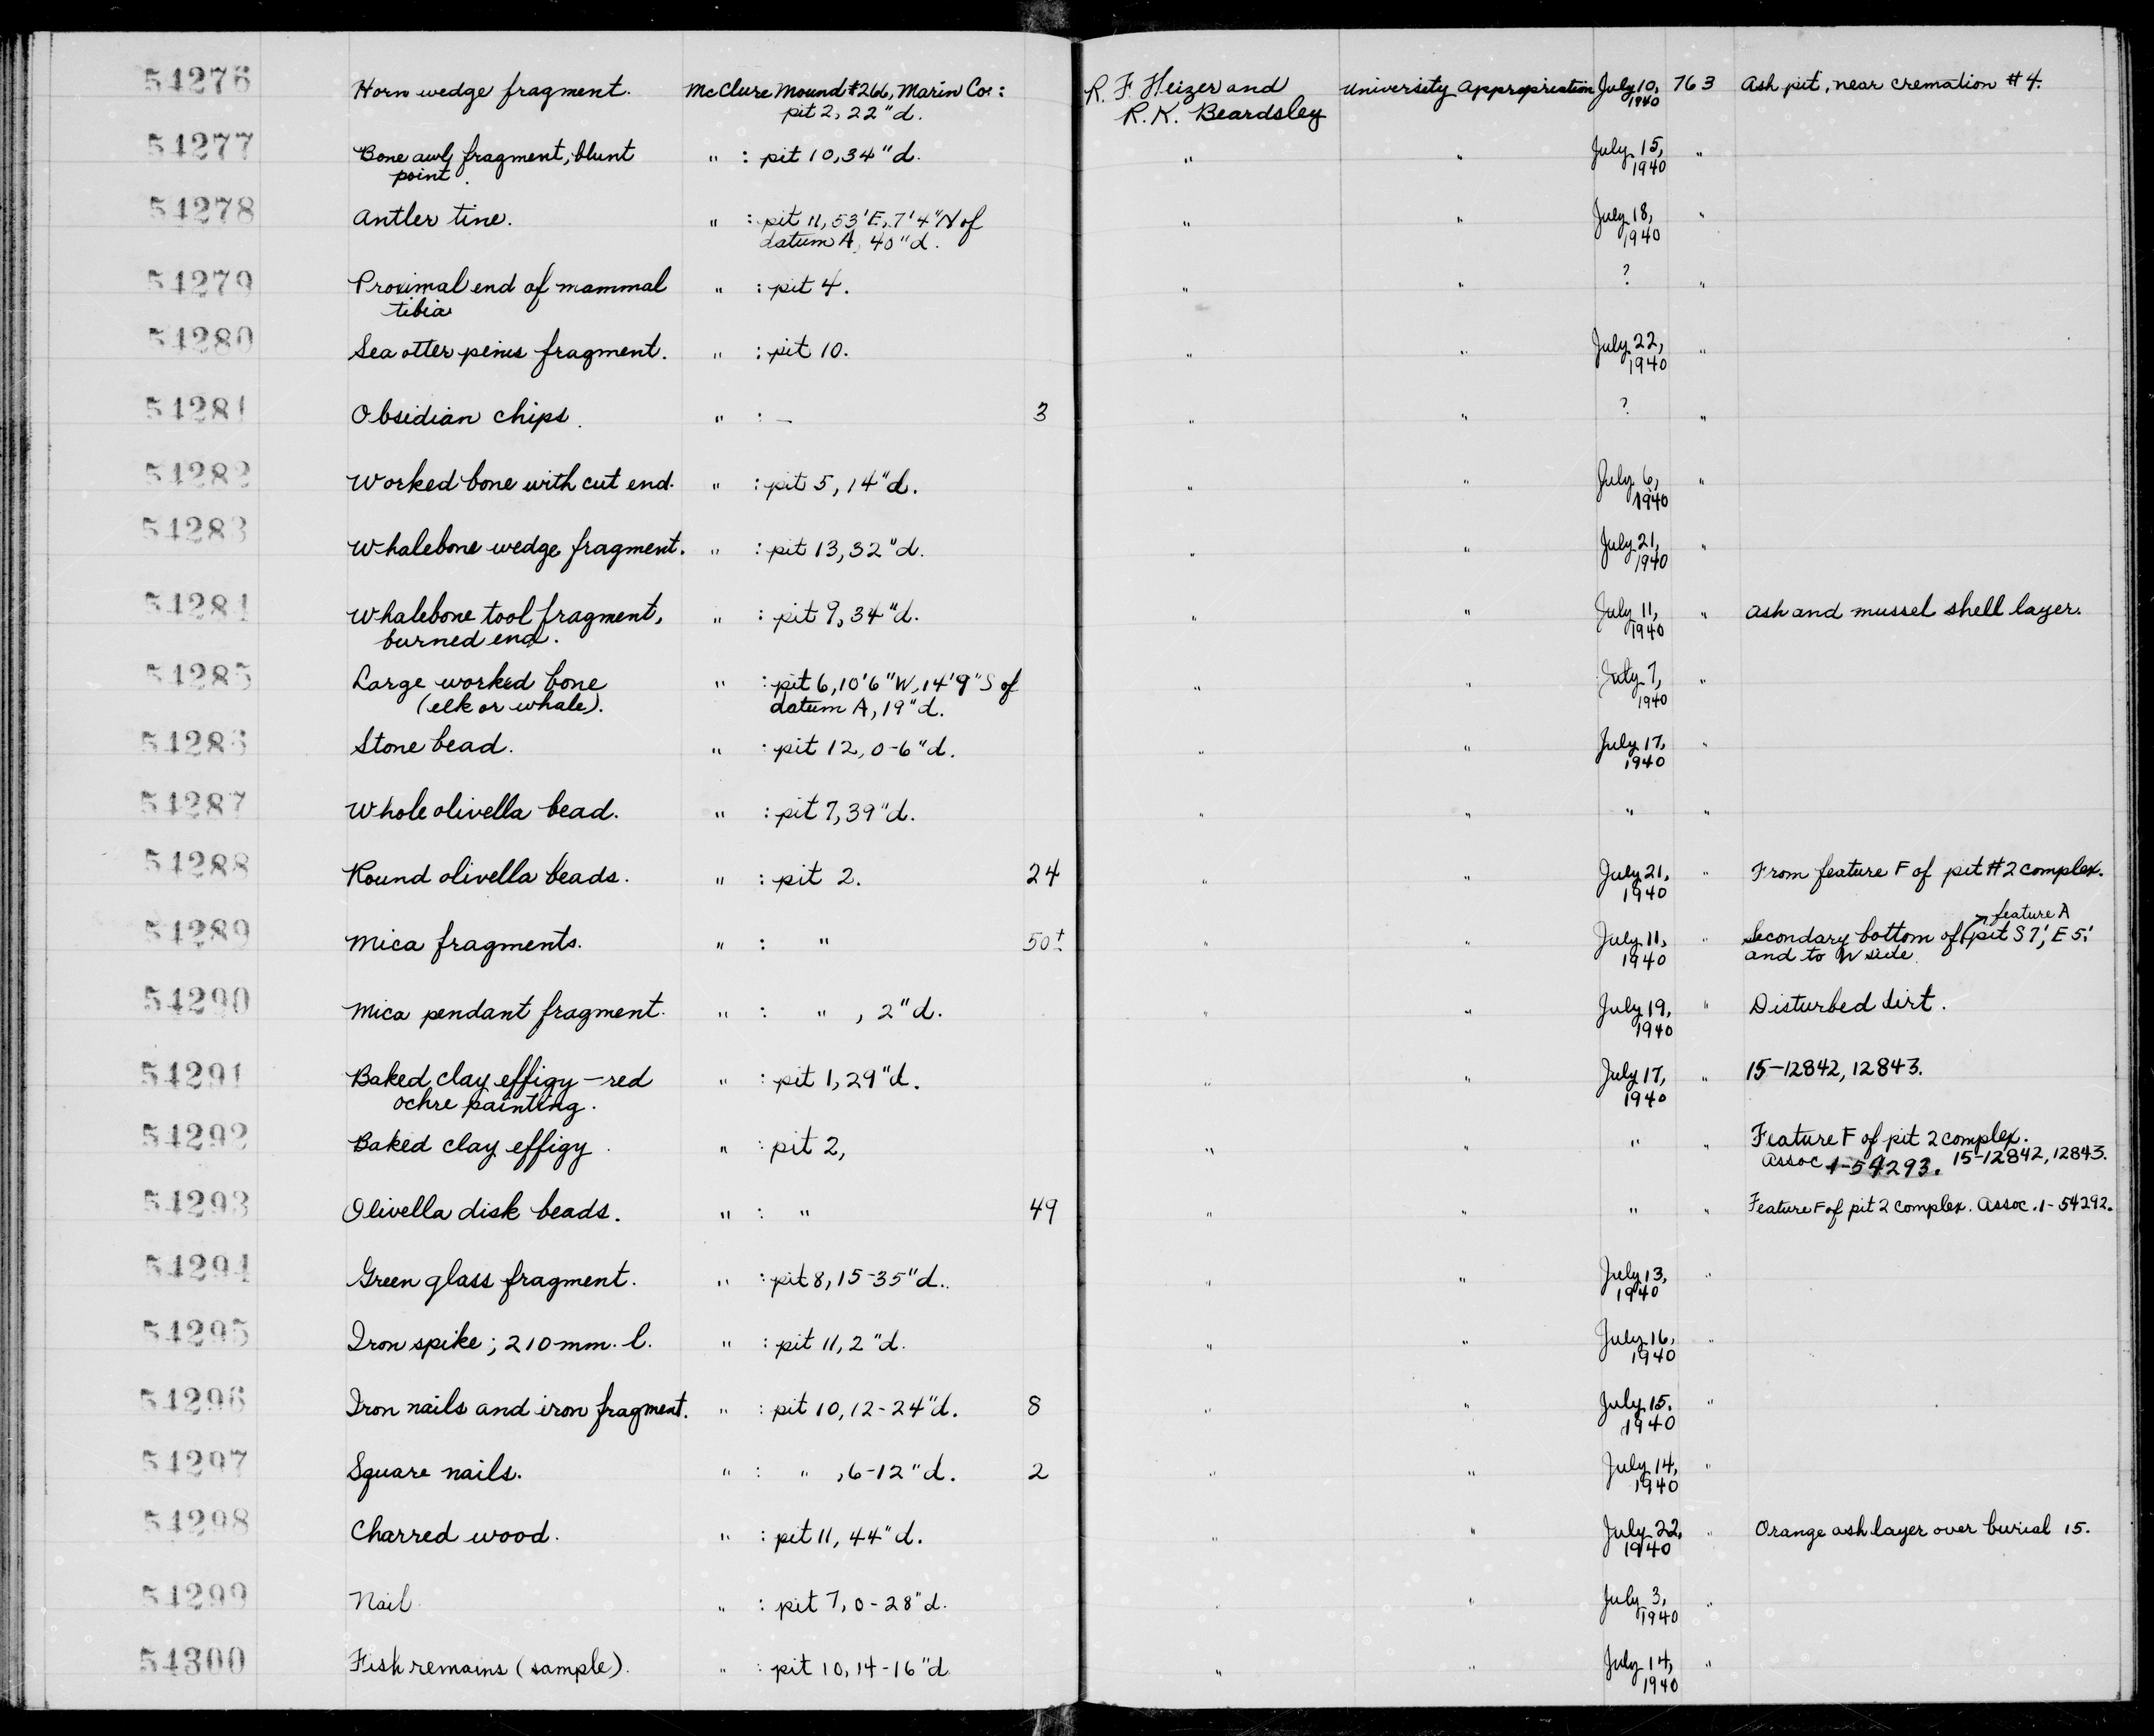 54276 Horn wedge fragment. McClure Mound #266, Marin Co.: R. F. Heizer and University Appropriation July 10, 763 Ash pit, near cremation #4.
pit 2, 22"d. R. K. Beardsley 1940
54277 Bone awl fragment, blunt " : pit 10, 34"d. " " July 15, "
point. 1940
54278 Antler tine. " : pit 11, 53'E, 7'4"N of " " July 18, "
datum A, 40"d. 1940
54279 Proximal end of mammal " : pit 4. " " ? "
tibia
54280 Sea otter penis fragment. " : pit 10. " " July 22, "
1940
54281 Obsidian chips. " : — 3 " " ? "
54282 Worked bone with cut end. " : pit 5, 14"d. " " July 6, "
1940
54283 Whalebone wedge fragment. " : pit 13, 32"d. " " July 21, "
1940
54284 Whalebone tool fragment, " : pit 9, 34"d. " " July 11, " Ash and mussel shell layer.
burned end. 1940
54285 Large worked bone " : pit 6, 10'6"W, 14'9"S of " " July 7, "
(elk or whale). datum A, 19"d. 1940
54286 Stone bead. " : pit 12, 0-6"d. " " July 17, "
1940
54287 Whole olivella bead. " : pit 7, 39"d. " " " "
54288 Round olivella beads. " : pit 2. 24 " " July 21, " From feature F of pit #2 complex.
1940
feature A
54289 Mica fragments. " : " 50± " " July 11, " Secondary bottom of pit S 7', E 5'
1940 and to W side.
54290 Mica pendant fragment. " : " , 2"d. " " July 19, " Disturbed dirt.
1940
54291 Baked clay effigy — red " : pit 1, 29"d. " " July 17, " 15-12842, 12843.
ochre painting. 1940
54292 Baked clay effigy. " : pit 2, " " " " Feature F of pit 2 complex.
Assoc 1-54293. 15-12842, 12843.
54293 Olivella disk beads. " : " 49 " " " " Feature F of pit 2 complex. Assoc. 1-54292.
54294 Green glass fragment. " : pit 8, 15-35"d. " " July 13, "
1940
54295 Iron spike; 210 mm. l. " : pit 11, 2"d. " " July 16, "
1940
54296 Iron nails and iron fragment. " : pit 10, 12-24"d. 8 " " July 15, "
1940
54297 Square nails. " : " , 6-12"d. 2 " " July 14, "
1940
54298 Charred wood. " : pit 11, 44"d. " " July 22, " Orange ash layer over burial 15.
1940
54299 Nail " : pit 7, 0-28"d. " " July 3, "
1940
54300 Fish remains (sample). " : pit 10, 14-16"d " " July 14, "
1940